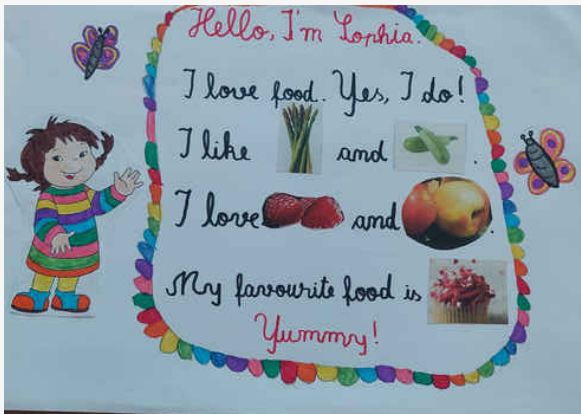 Hello, I'm Sophia.
I love food. Yes, I do!
I like and .
I love and .
My favourite food is
Yummy!